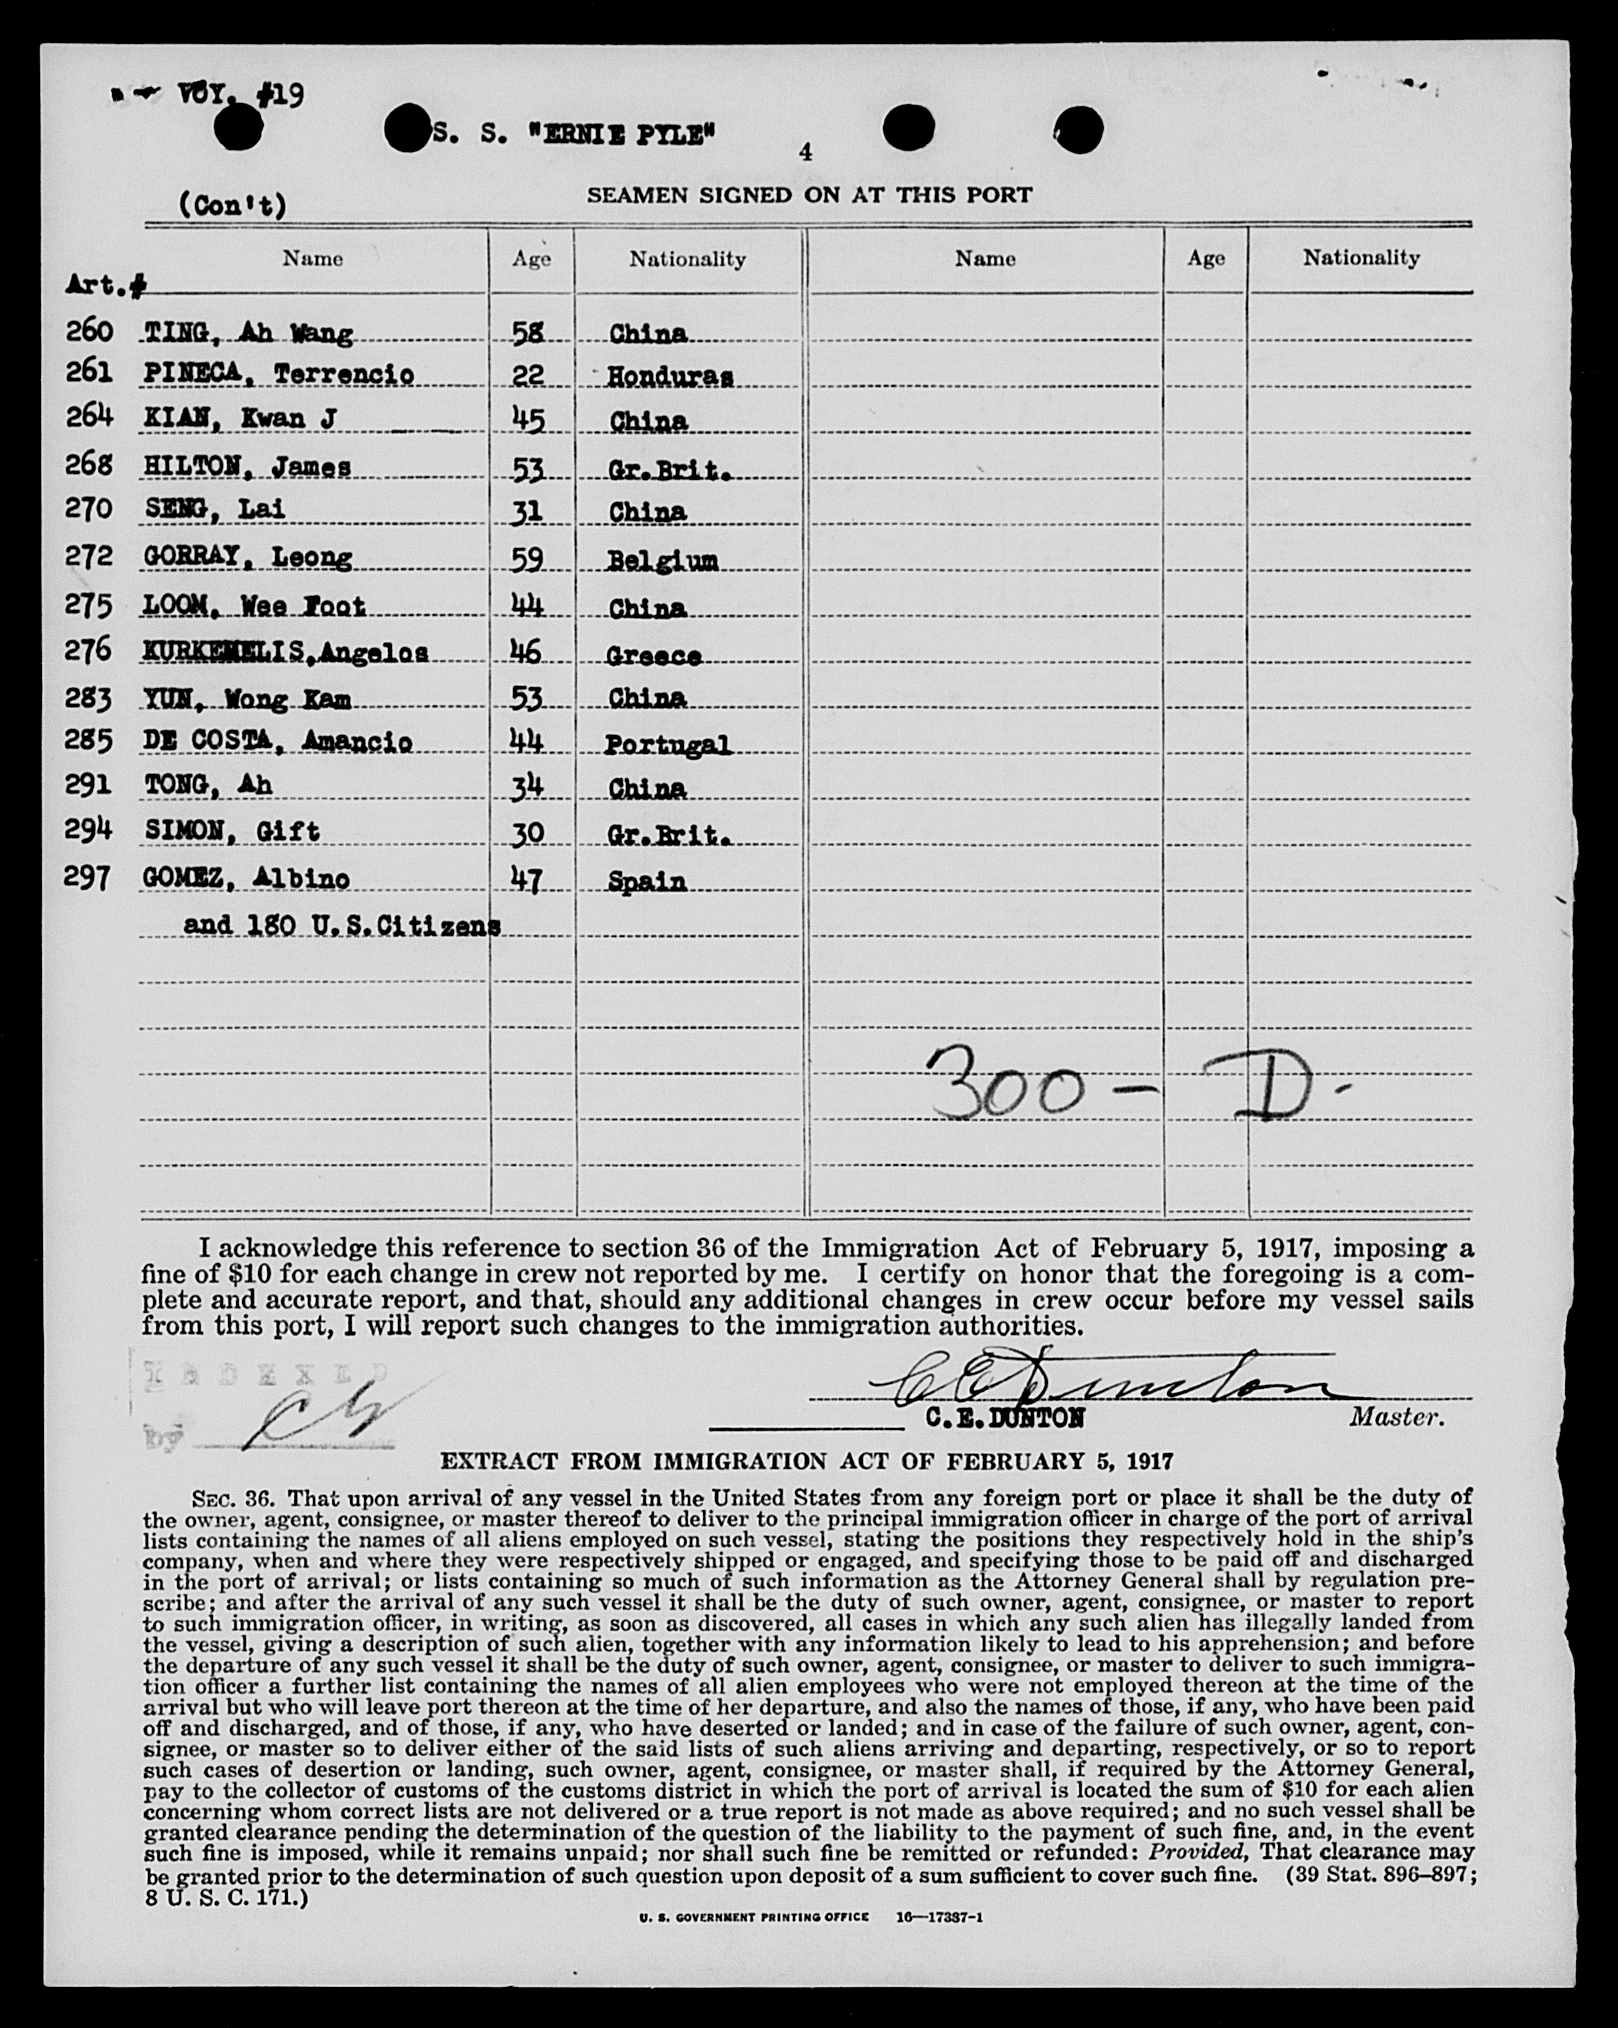 VOY. #19
S. S. "ERNIE PYLE"
4
(Con't)
SEAMEN SIGNED ON AT THIS PORT
Name Age Nationality Name Age Nationality
Art.#
260 TING, Ah Wang 58 China
261 PINECA, Terrencio 22 Honduras
264 KIAN, Kwan J 45 China
268 HILTON, James 53 Gr.Brit.
270 SENG, Lai 31 China
272 GORRAY, Leong 59 Belgium
275 LOOM, Wee Foot 44 China
276 KURKEMELIS,Angelos 46 Greece
283 YUN, Wong Kam 53 China
285 DE COSTA, Amancio 44 Portugal
291 TONG, Ah 34 China
294 SIMON, Gift 30 Gr.Brit.
297 GOMEZ, Albino 47 Spain
and 180 U.S.Citizens
300 - D.
I acknowledge this reference to section 36 of the Immigration Act of February 5, 1917, imposing a
fine of $10 for each change in crew not reported by me. I certify on honor that the foregoing is a com-
plete and accurate report, and that, should any additional changes in crew occur before my vessel sails
from this port, I will report such changes to the immigration authorities.
INDEXED
C E Dunton
by
C.E.DUNTON Master.
EXTRACT FROM IMMIGRATION ACT OF FEBRUARY 5, 1917
SEC. 36. That upon arrival of any vessel in the United States from any foreign port or place it shall be the duty of
the owner, agent, consignee, or master thereof to deliver to the principal immigration officer in charge of the port of arrival
lists containing the names of all aliens employed on such vessel, stating the positions they respectively hold in the ship's
company, when and where they were respectively shipped or engaged, and specifying those to be paid off and discharged
in the port of arrival; or lists containing so much of such information as the Attorney General shall by regulation pre-
scribe; and after the arrival of any such vessel it shall be the duty of such owner, agent, consignee, or master to report
to such immigration officer, in writing, as soon as discovered, all cases in which any such alien has illegally landed from
the vessel, giving a description of such alien, together with any information likely to lead to his apprehension; and before
the departure of any such vessel it shall be the duty of such owner, agent, consignee, or master to deliver to such immigra-
tion officer a further list containing the names of all alien employees who were not employed thereon at the time of the
arrival but who will leave port thereon at the time of her departure, and also the names of those, if any, who have been paid
off and discharged, and of those, if any, who have deserted or landed; and in case of the failure of such owner, agent, con-
signee, or master so to deliver either of the said lists of such aliens arriving and departing, respectively, or so to report
such cases of desertion or landing, such owner, agent, consignee, or master shall, if required by the Attorney General,
pay to the collector of customs of the customs district in which the port of arrival is located the sum of $10 for each alien
concerning whom correct lists are not delivered or a true report is not made as above required; and no such vessel shall be
granted clearance pending the determination of the question of the liability to the payment of such fine, and, in the event
such fine is imposed, while it remains unpaid; nor shall such fine be remitted or refunded: Provided, That clearance may
be granted prior to the determination of such question upon deposit of a sum sufficient to cover such fine. (39 Stat. 896–897;
8 U. S. C. 171.)
U. S. GOVERNMENT PRINTING OFFICE 16—17387-1